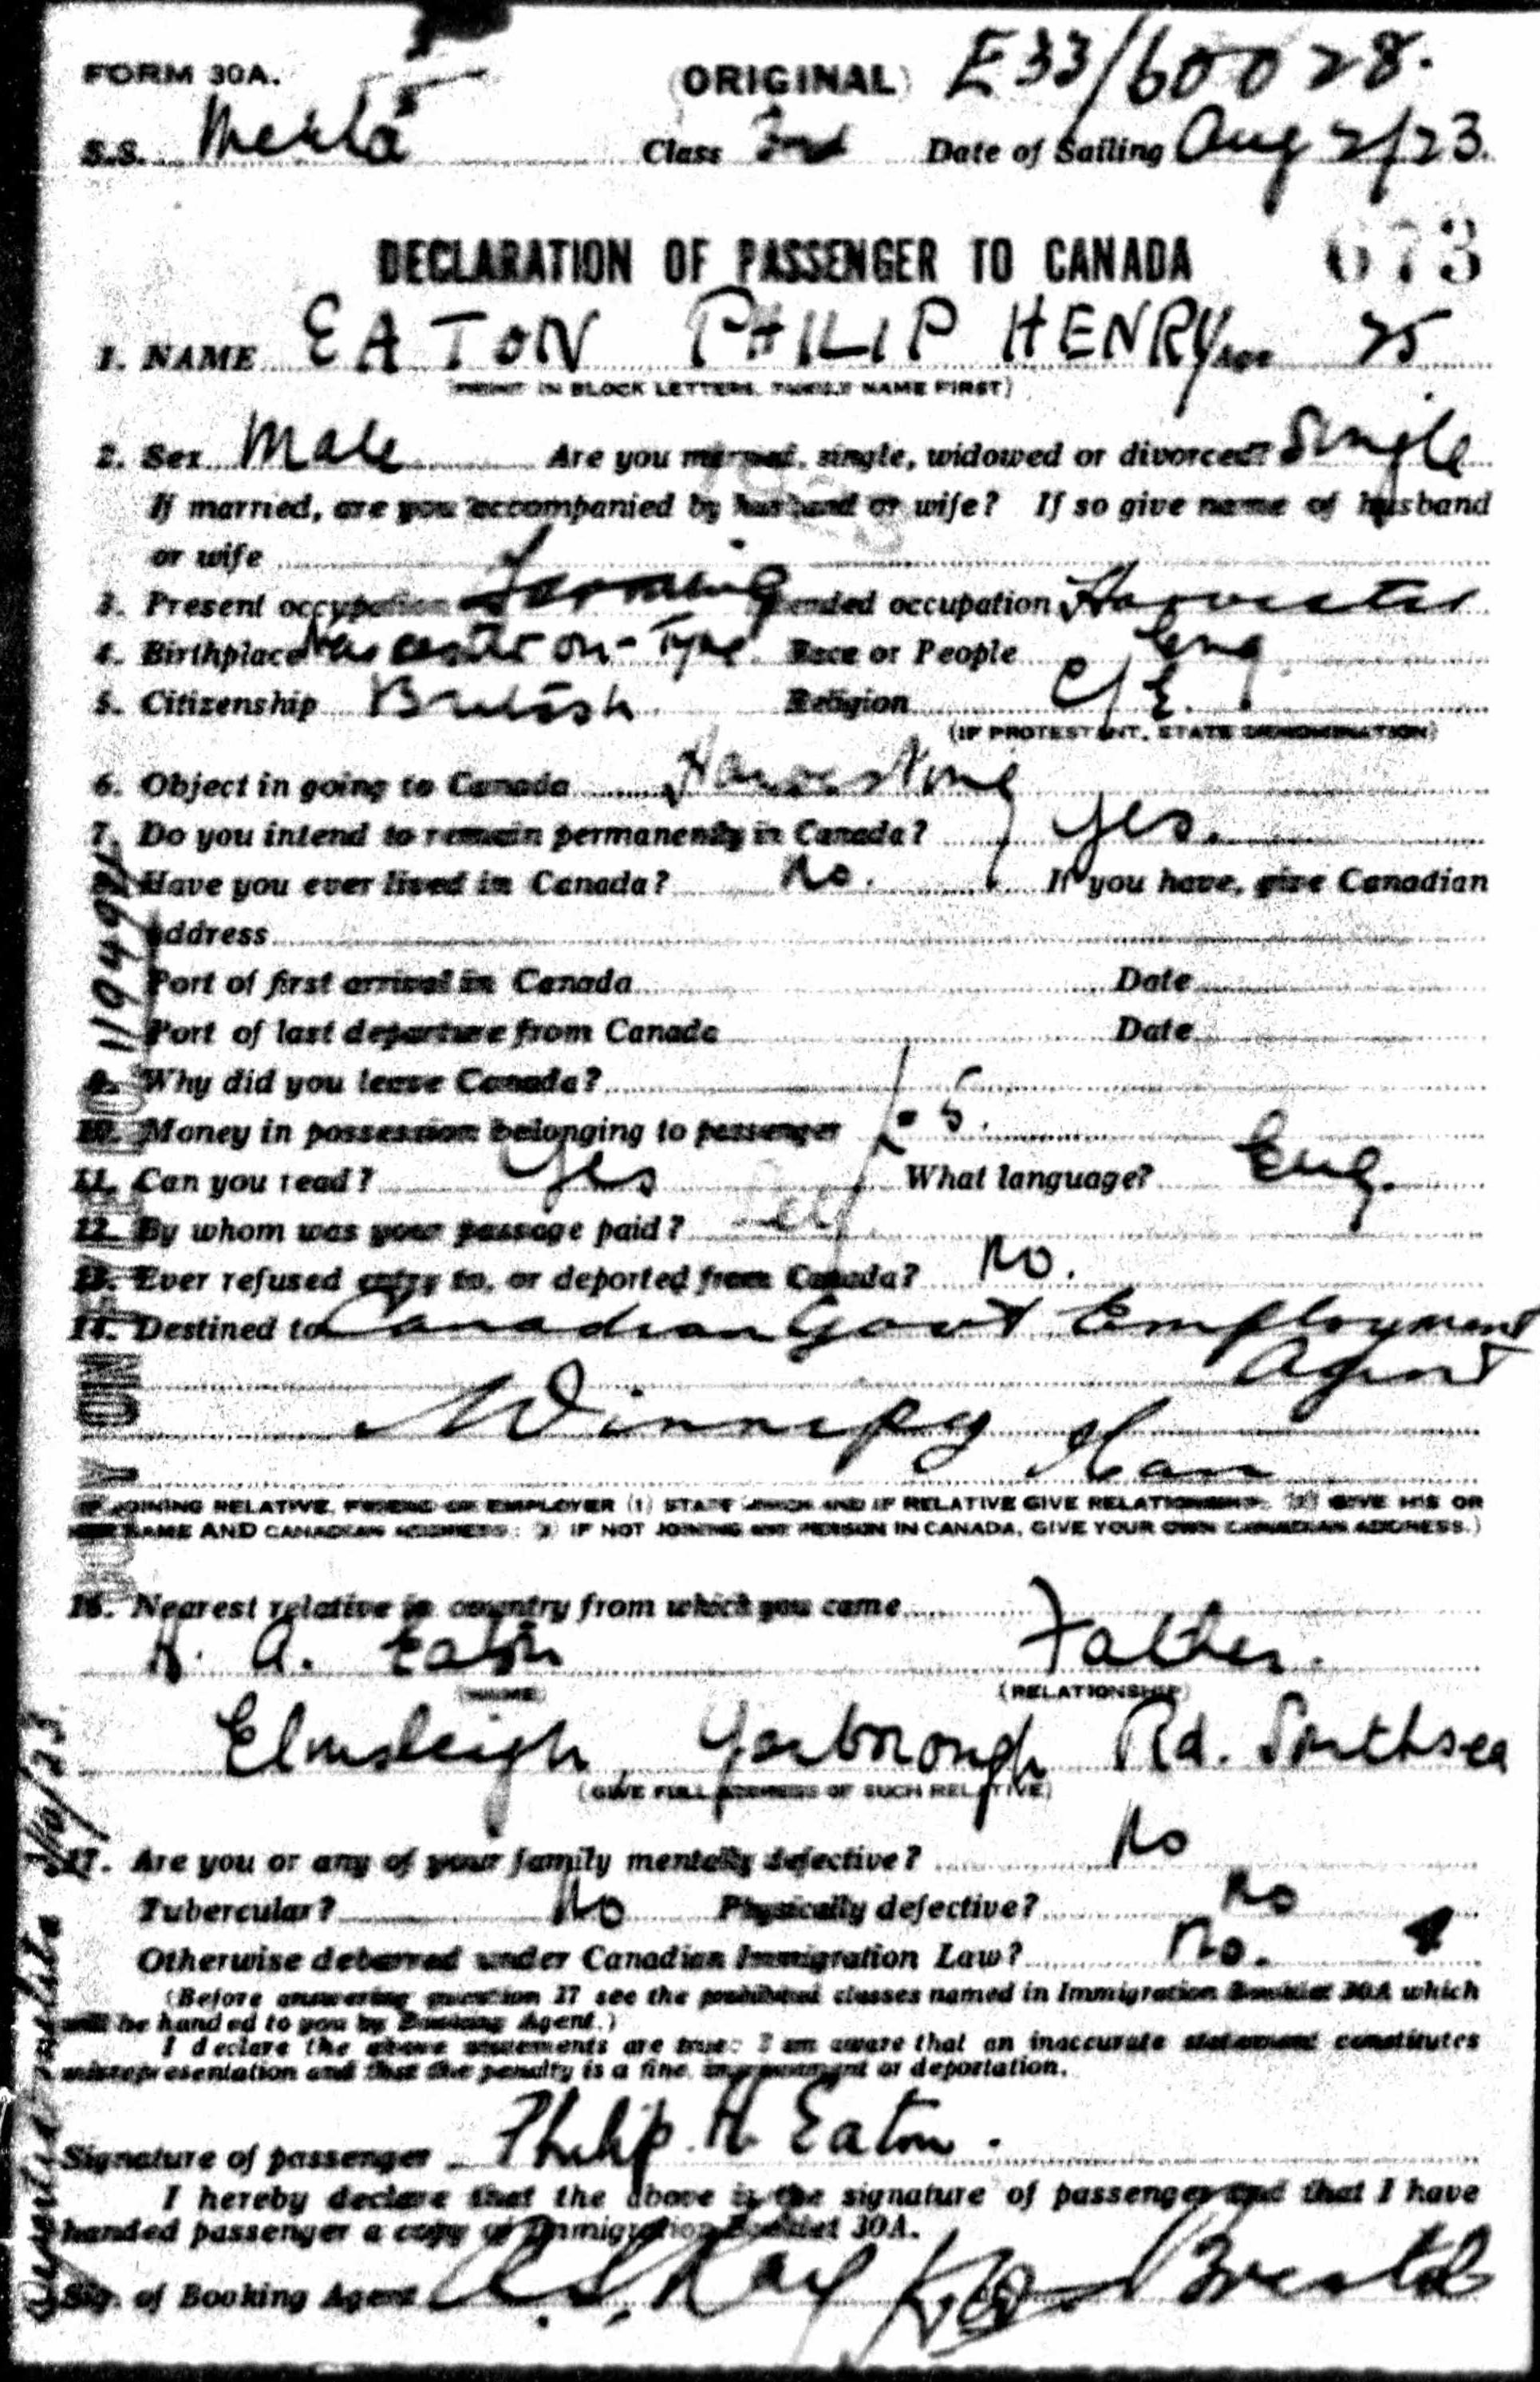 FORM 30A. (ORIGINAL) E33/60028.
S.S. Class 3rd Date of Sailing Aug 2/23.
673
DECLARATION OF PASSENGER TO CANADA
1. NAME EATON PHILIP HENRY Age 25
(PRINT IN BLOCK LETTERS, FAMILY NAME FIRST)
2. Sex Male Are you married, single, widowed or divorced? Single
If married, are you accompanied by husband or wife? If so give name of husband
or wife
3. Present occupation Farming Intended occupation Harvester
4. Birthplace Newcastle on-Tyne Race or People Eng
5. Citizenship British Religion C/E.
(IF PROTESTANT, STATE DENOMINATION)
6. Object in going to Canada Harvesting
7. Do you intend to remain permanently in Canada? Yes.
8. Have you ever lived in Canada? No. If you have, give Canadian
address
Port of first arrival in Canada Date
Port of last departure from Canada Date
9. Why did you leave Canada?
10. Money in possession belonging to passenger £5.
11. Can you read? Yes What language? Eng.
12. By whom was your passage paid? Self
13. Ever refused entry to, or deported from Canada? No.
14. Destined to Canadian Govt Employment
Agent
Winnipeg Man
(IF JOINING RELATIVE, FRIEND OR EMPLOYER (1) STATE WHICH AND IF RELATIVE GIVE RELATIONSHIP; (2) GIVE HIS OR
HER NAME AND CANADIAN ADDRESS; (3) IF NOT JOINING ANY PERSON IN CANADA, GIVE YOUR OWN CANADIAN ADDRESS.)
16. Nearest relative in country from which you came
H. A. Eaton Father.
(NAME) (RELATIONSHIP)
Elmsleigh, Yarborough Rd. Southsea
(GIVE FULL ADDRESS OF SUCH RELATIVE)
17. Are you or any of your family mentally defective? No
Tubercular? No Physically defective? No
Otherwise debarred under Canadian Immigration Law? No.
(Before answering question 17 see the prohibited classes named in Immigration Booklet 30A which
will be handed to you by Booking Agent.)
I declare the above statements are true: I am aware that an inaccurate statement constitutes
misrepresentation and that the penalty is a fine, imprisonment or deportation.
Signature of passenger Philip H Eaton.
I hereby declare that the above is the signature of passenger and that I have
handed passenger a copy of Immigration Booklet 30A.
Sig. of Booking Agent Bristol